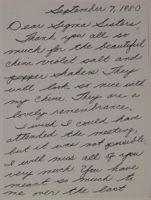 September 7, 1980
Dear Sigma Sisters,
Thank you all so
much for the beautiful
chine violet salt and
pepper shakers. They
will look so nice with
my china. They are a
lovely remembrance.
I wish I could have
attended the meeting,
but it was not possible.
I will miss all of you
very much. You have
meant so much to
me over the last